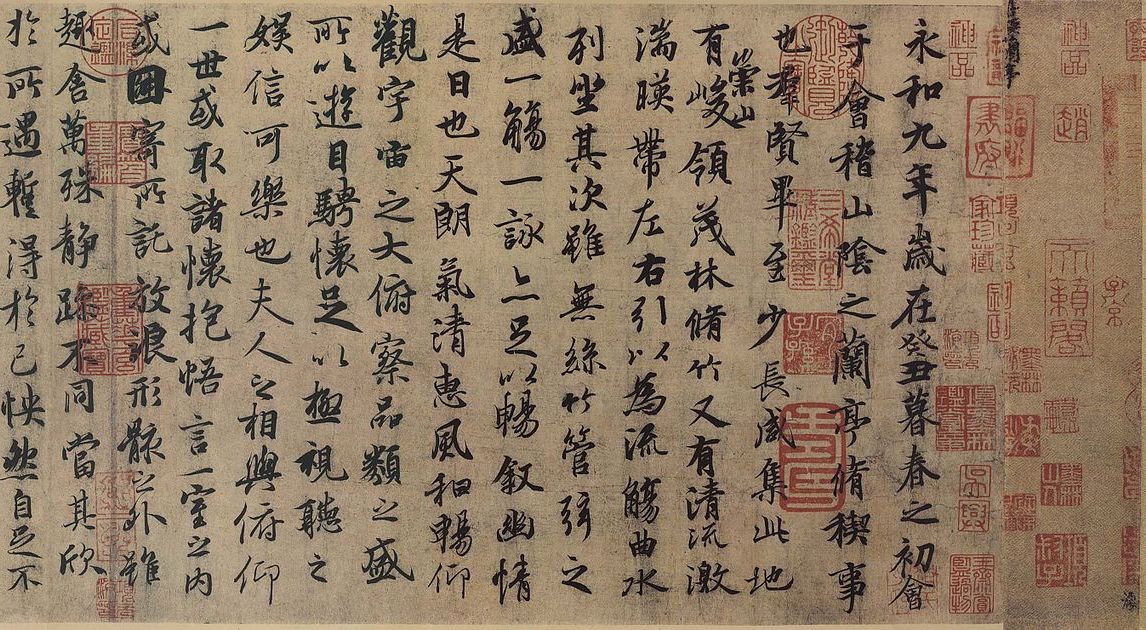 神品
趙
天籟閣
神品
永和九年歲在癸丑暮春之初會
于會稽山陰之蘭亭脩稧事
也羣賢畢至少長咸集此地
有崇山峻領茂林脩竹又有清流激
湍暎帶左右引以為流觴曲水
列坐其次雖無絲竹管弦之
盛一觴一詠亦足以暢叙幽情
是日也天朗氣清惠風和暢仰
觀宇宙之大俯察品類之盛
所以遊目騁懷足以極視聽之
娛信可樂也夫人之相與俯仰
一世或取諸懷抱悟言一室之内
或因寄所託放浪形骸之外雖
趣舍萬殊静躁不同當其欣
於所遇暫得於己怏然自足不